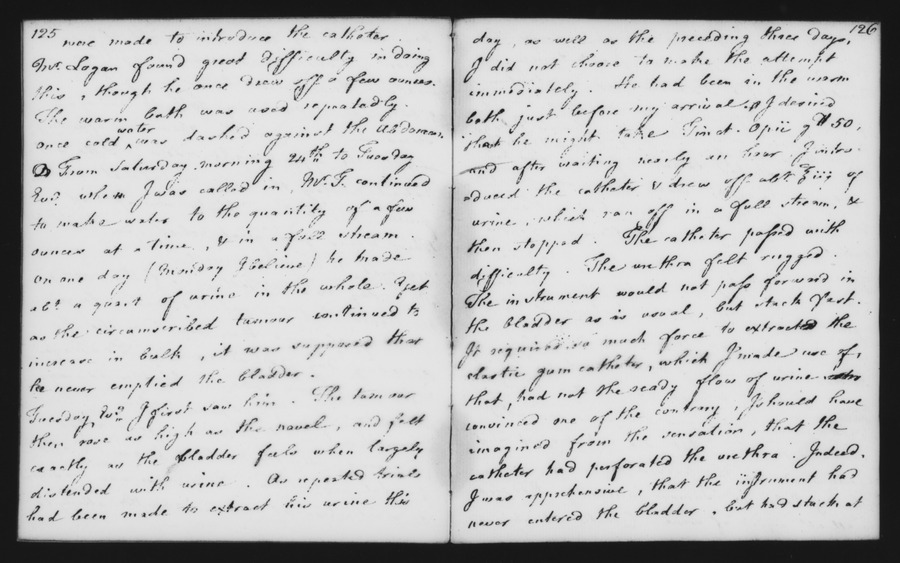 125
were made to introduce the catheter.
Mr. Logan found great difficulty in doing
this, though he once drew off a few ounces.
The warm bath was used repeatedly.
once cold water was dashed against the abdomen.
From Saturday morning 24th to Tuesday
when I was called in, Mr. T. continued
to make water to the quantity of a few
ounces at a time, & in a full stream.
on one day (Monday I believe) he made
abt a quart of urine in the whole. Yet
as the circumscribed tumour continued to
increase in bulk, it was supposed that
he never emptied the bladder.
Tuesday, I first saw him. The tumour
then rose as high as the navel, and felt
exactly as the bladder feels when largely
distended with urine. As repeated trials
had been made to extract his urine this
126
day, as well as the preceding three days,
I did not choose to make the attempt
immediately. He had been in the warm
bath just before my arrival. I desired
that he might take Tinct. Opii gtt 50,
and after waiting nearly an hour I intro-
duced the catheter & drew off abt ℥iii of
urine, which ran off in a full stream, &
then stopped. The catheter passed with
difficulty. The urethra felt rugged.
The instrument would not pass forward in
the bladder as is usual, but stuck fast.
It required so much force to extract the
elastic gum catheter, which I made use of,
that, had not the ready flow of urine
convinced me of the contrary, I should have
imagined from the sensation, that the
catheter had perforated the urethra. Indeed,
I was apprehensive, that the instrument had
never entered the bladder, but had stuck at